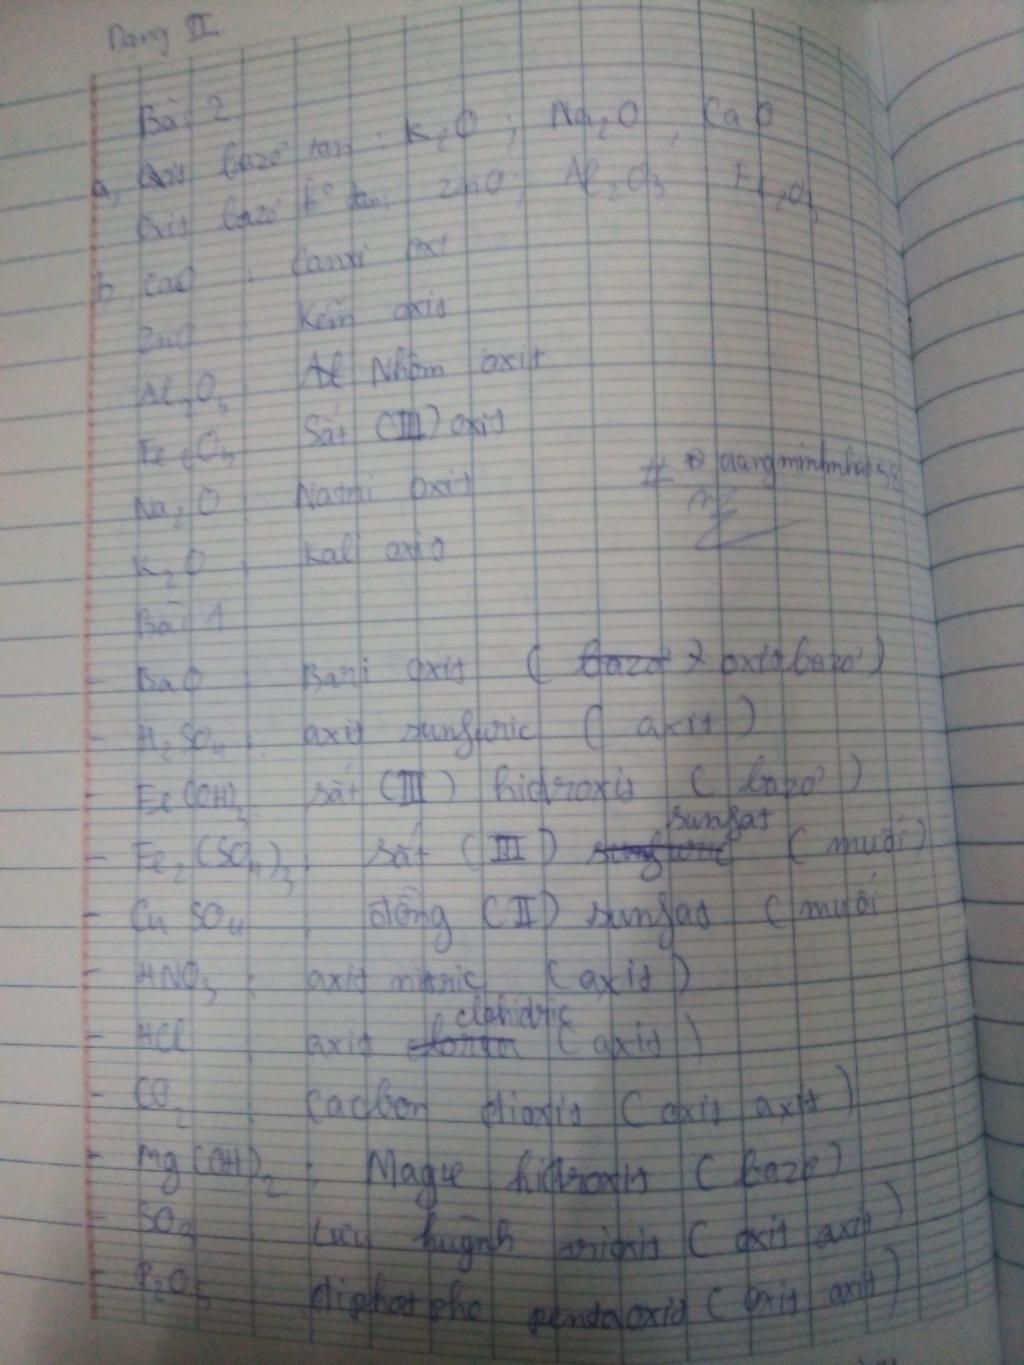 Dạng II
Bài 2
a, Oxit bazơ tan : K2O ; Na2O , CaO
Oxit bazơ ko tan: ZnO, Al2O3 Fe2O3
b CaO : Canxi oxi
ZnO Kẽm oxit
Al2O3 : Nhôm oxit
Fe2O3 Sắt (III) oxit
Na2O Natri oxit
# dangminhnhat58
K2O : Kali oxit
Bài 1
- BaO : Bari oxit ( oxit bazơ )
- H2SO4 : axit sunfuric ( axit )
- Fe(OH)3 sắt (III) hidroxit ( bazơ )
- Fe2(SO4)3 : sắt (III) sunfat ( muối )
- CuSO4 : đồng (II) sunfat ( muối
- HNO3 : axit nitric (axit )
- HCl : axit clohidric ( axit )
- CO2 : Cacbon đioxit ( oxit axit )
- Mg(OH)2 : Magie hidroxit ( bazơ )
- Lưu huỳnh trioxit ( oxit axit )
- P2O5 điphotpho pentaoxit ( oxit axit )